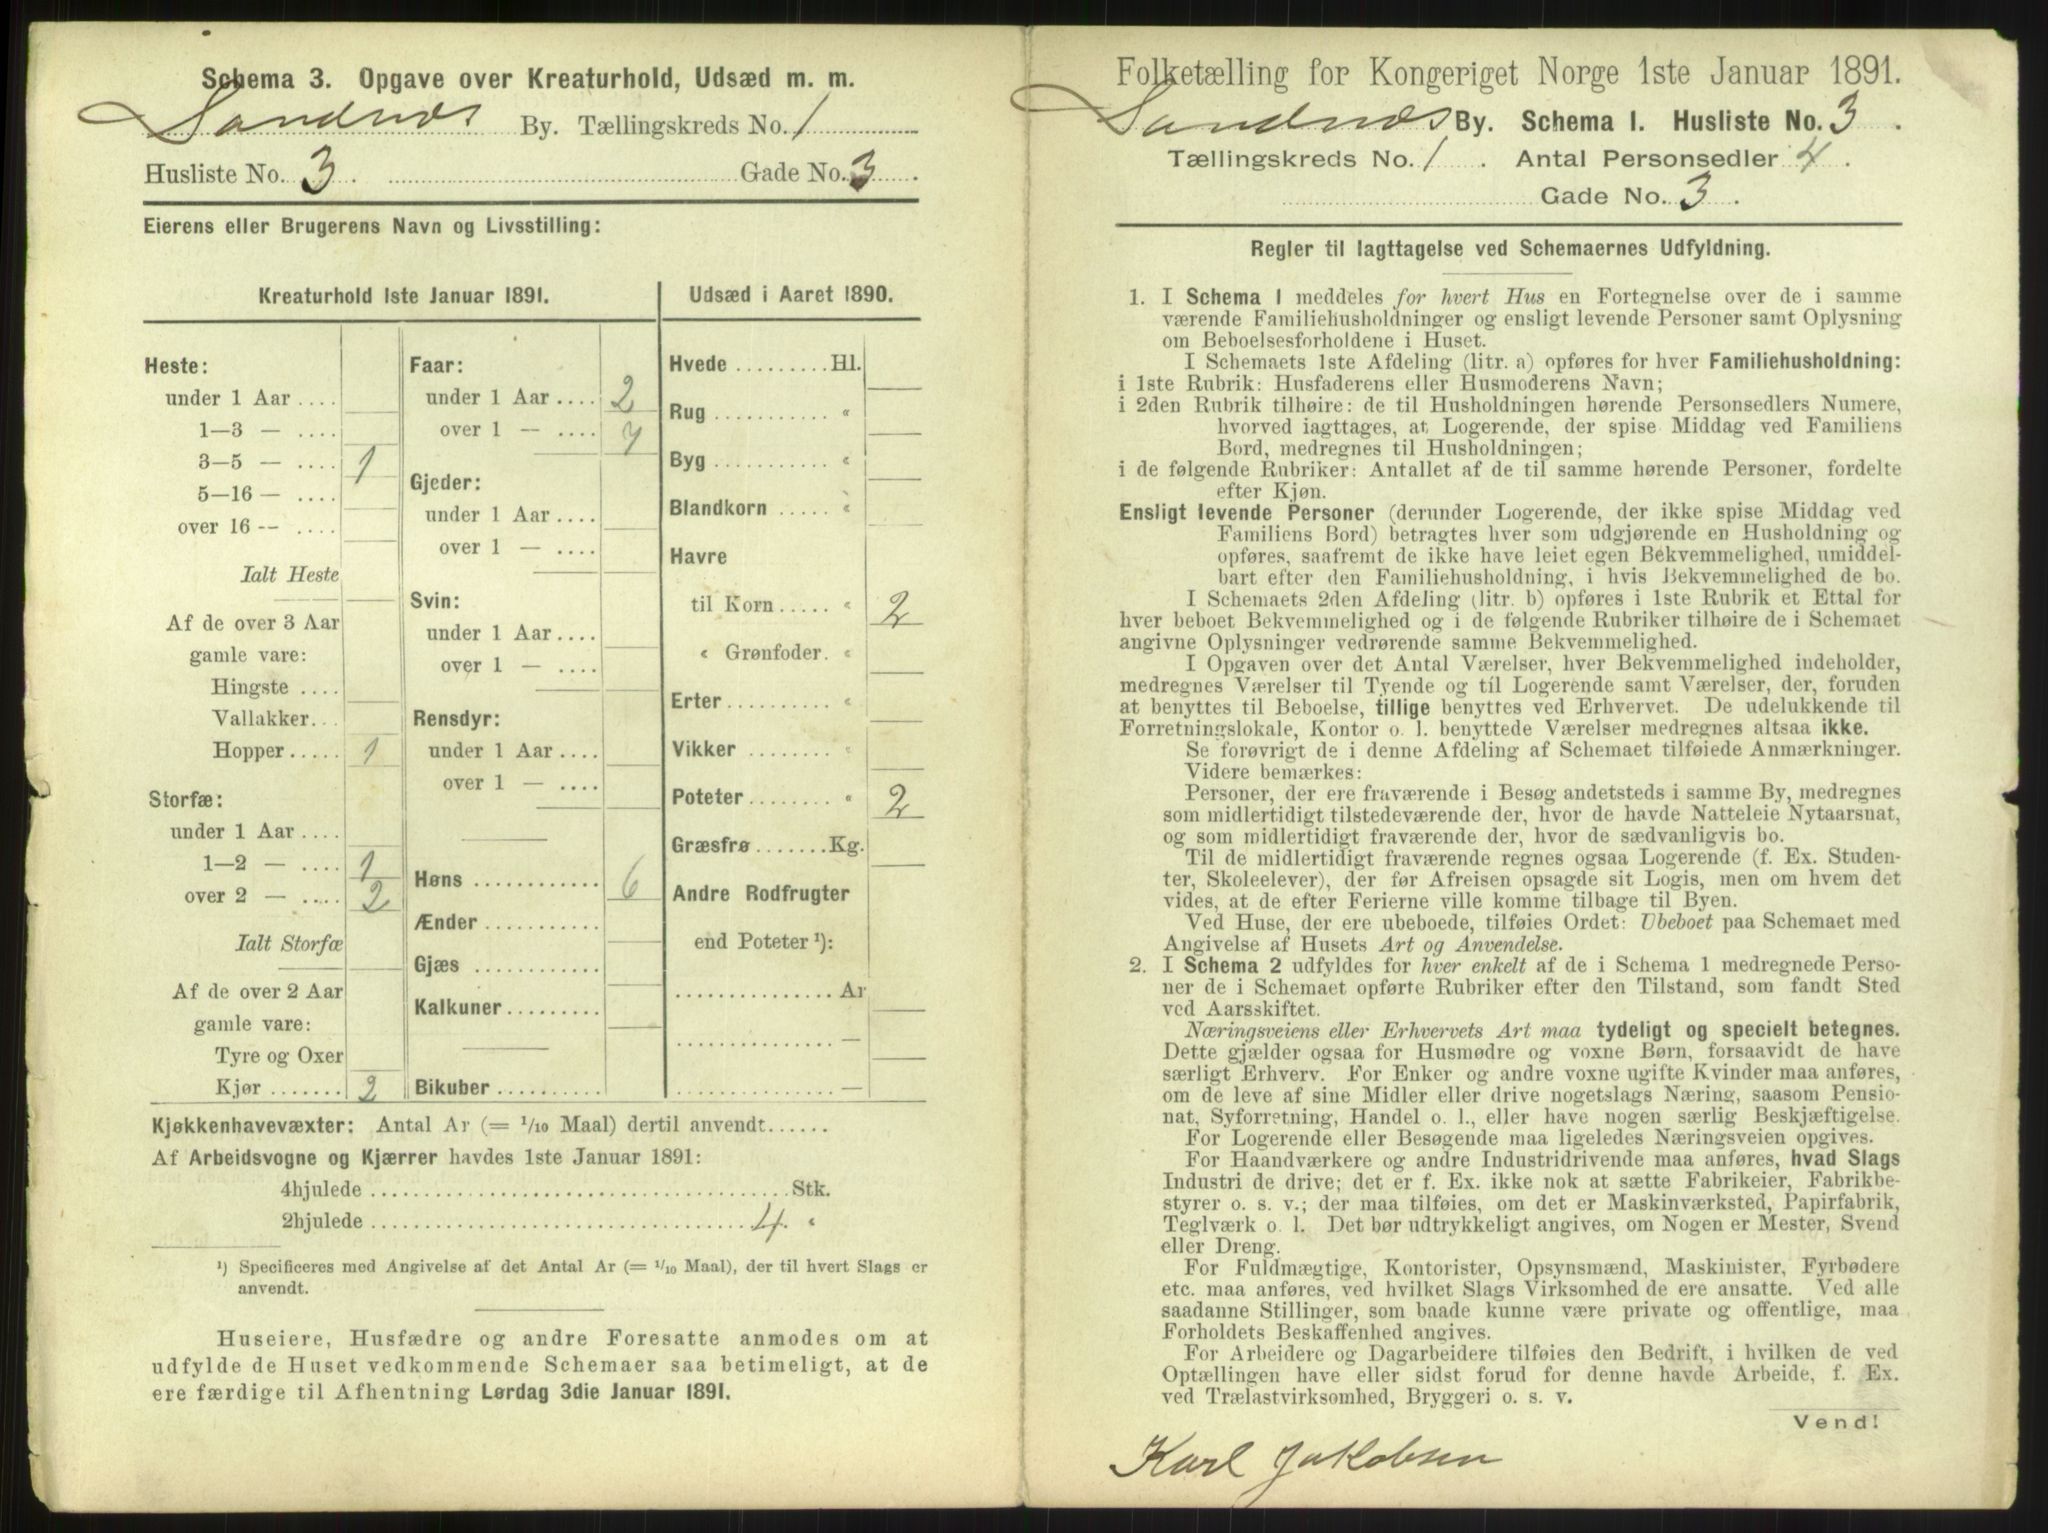 Schema 3. Opgave over Kreaturhold, Udsæd m. m.
Sandnæs By. Tællingskreds No. 1
Husliste No. 3 Gade No. 3
Eierens eller Brugerens Navn og Livsstilling:
Kreaturhold 1ste Januar 1891.
Heste:
under 1 Aar ....
1—3 — ....
3—5 — .... 1
5—16 — ....
over 16 -- ....
Ialt Heste
Af de over 3 Aar
gamle vare:
Hingste ....
Vallakker...
Hopper ..... 1
Storfæ:
under 1 Aar ....
1—2 — .... 1
over 2 — .... 2
Ialt Storfæ
Af de over 2 Aar
gamle vare:
Tyre og Oxer
Kjør ....... 2
Faar:
under 1 Aar .... 2
over 1 — .... 7
Gjeder:
under 1 Aar ....
over 1 — ....
Svin:
under 1 Aar ....
over 1 — ....
Rensdyr:
under 1 Aar ....
over 1 — ....
Høns ............ 6
Ænder ...........
Gjæs ............
Kalkuner.........
Bikuber ..........
Udsæd i Aaret 1890.
Hvede ......... Hl.
Rug ........... "
Byg ........... "
Blandkorn ..... "
Havre
til Korn ..... " 2
" Grønfoder. "
Erter ......... "
Vikker ........ "
Poteter ........ " 2
Græsfrø ....... Kg.
Andre Rodfrugter
end Poteter ¹):
............... Ar
............... —
............... —
Kjøkkenhavevæxter: Antal Ar (= 1/10 Maal) dertil anvendt......
Af Arbeidsvogne og Kjærrer havdes 1ste Januar 1891:
4hjulede ...................................... Stk.
2hjulede .................................. 4 "
¹) Specificeres med Angivelse af det Antal Ar (= 1/10 Maal), der til hvert Slags er
anvendt.
Huseiere, Husfædre og andre Foresatte anmodes om at
udfylde de Huset vedkommende Schemaer saa betimeligt, at de
ere færdige til Afhentning Lørdag 3die Januar 1891.
Folketælling for Kongeriget Norge 1ste Januar 1891.
Sandnæs By. Schema I. Husliste No. 3.
Tællingskreds No. 1. Antal Personsedler 4.
Gade No. 3.
Regler til Iagttagelse ved Schemaernes Udfyldning.
1. I Schema 1 meddeles for hvert Hus en Fortegnelse over de i samme
værende Familiehusholdninger og ensligt levende Personer samt Oplysning
om Beboelsesforholdene i Huset.
I Schemaets 1ste Afdeling (litr. a) opføres for hver Familiehusholdning:
i 1ste Rubrik: Husfaderens eller Husmoderens Navn;
i 2den Rubrik tilhøire: de til Husholdningen hørende Personsedlers Numere,
hvorved iagttages, at Logerende, der spise Middag ved Familiens
Bord, medregnes til Husholdningen;
i de følgende Rubriker: Antallet af de til samme hørende Personer, fordelte
efter Kjøn.
Ensligt levende Personer (derunder Logerende, der ikke spise Middag ved
Familiens Bord) betragtes hver som udgjørende en Husholdning og
opføres, saafremt de ikke have leiet egen Bekvemmelighed, umiddel-
bart efter den Familiehusholdning, i hvis Bekvemmelighed de bo.
I Schemaets 2den Afdeling (litr. b) opføres i 1ste Rubrik et Ettal for
hver beboet Bekvemmelighed og i de følgende Rubriker tilhøire de i Schemaet
angivne Oplysninger vedrørende samme Bekvemmelighed.
I Opgaven over det Antal Værelser, hver Bekvemmelighed indeholder,
medregnes Værelser til Tyende og til Logerende samt Værelser, der, foruden
at benyttes til Beboelse, tillige benyttes ved Erhvervet. De udelukkende til
Forretningslokale, Kontor o. l. benyttede Værelser medregnes altsaa ikke.
Se forøvrigt de i denne Afdeling af Schemaet tilføiede Anmærkninger.
Videre bemærkes:
Personer, der ere fraværende i Besøg andetsteds i samme By, medregnes
som midlertidigt tilstedeværende der, hvor de havde Natteleie Nytaarsnat,
og som midlertidigt fraværende der, hvor de sædvanligvis bo.
Til de midlertidigt fraværende regnes ogsaa Logerende (f. Ex. Studen-
ter, Skoleelever), der før Afreisen opsagde sit Logis, men om hvem det
vides, at de efter Ferierne ville komme tilbage til Byen.
Ved Huse, der ere ubeboede, tilføies Ordet: Ubeboet paa Schemaet med
Angivelse af Husets Art og Anvendelse.
2. I Schema 2 udfyldes for hver enkelt af de i Schema 1 medregnede Perso-
ner de i Schemaet opførte Rubriker efter den Tilstand, som fandt Sted
ved Aarsskiftet.
Næringsveiens eller Erhvervets Art maa tydeligt og specielt betegnes.
Dette gjælder ogsaa for Husmødre og voxne Børn, forsaavidt de have
særligt Erhverv. For Enker og andre voxne ugifte Kvinder maa anføres,
om de leve af sine Midler eller drive nogetslags Næring, saasom Pensio-
nat, Syforretning, Handel o. l., eller have nogen særlig Beskjæftigelse.
For Logerende eller Besøgende maa ligeledes Næringsveien opgives.
For Haandværkere og andre Industridrivende maa anføres, hvad Slags
Industri de drive; det er f. Ex. ikke nok at sætte Fabrikeier, Fabrikbe-
styrer o. s. v.; der maa tilføies, om det er Maskinværksted, Papirfabrik,
Teglværk o. l. Det bør udtrykkeligt angives, om Nogen er Mester, Svend
eller Dreng.
For Fuldmægtige, Kontorister, Opsynsmænd, Maskinister, Fyrbødere
etc. maa anføres, ved hvilket Slags Virksomhed de ere ansatte. Ved alle
saadanne Stillinger, som baade kunne være private og offentlige, maa
Forholdets Beskaffenhed angives.
For Arbeidere og Dagarbeidere tilføies den Bedrift, i hvilken de ved
Optællingen have eller sidst forud for denne havde Arbeide, f. Ex.
ved Trælastvirksomhed, Bryggeri o. s. v.
Vend!
Karl Jakobsen